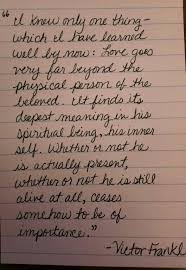 "I knew only one thing-
which I have learned
well by now: Love goes
very far beyond the
physical person of the
beloved. It finds its
deepest meaning in his
spiritual being, his inner
self. Whether or not he
is actually present,
whether or not he is still
alive at all, ceases
somehow to be of
importance."
-Victor Frankl